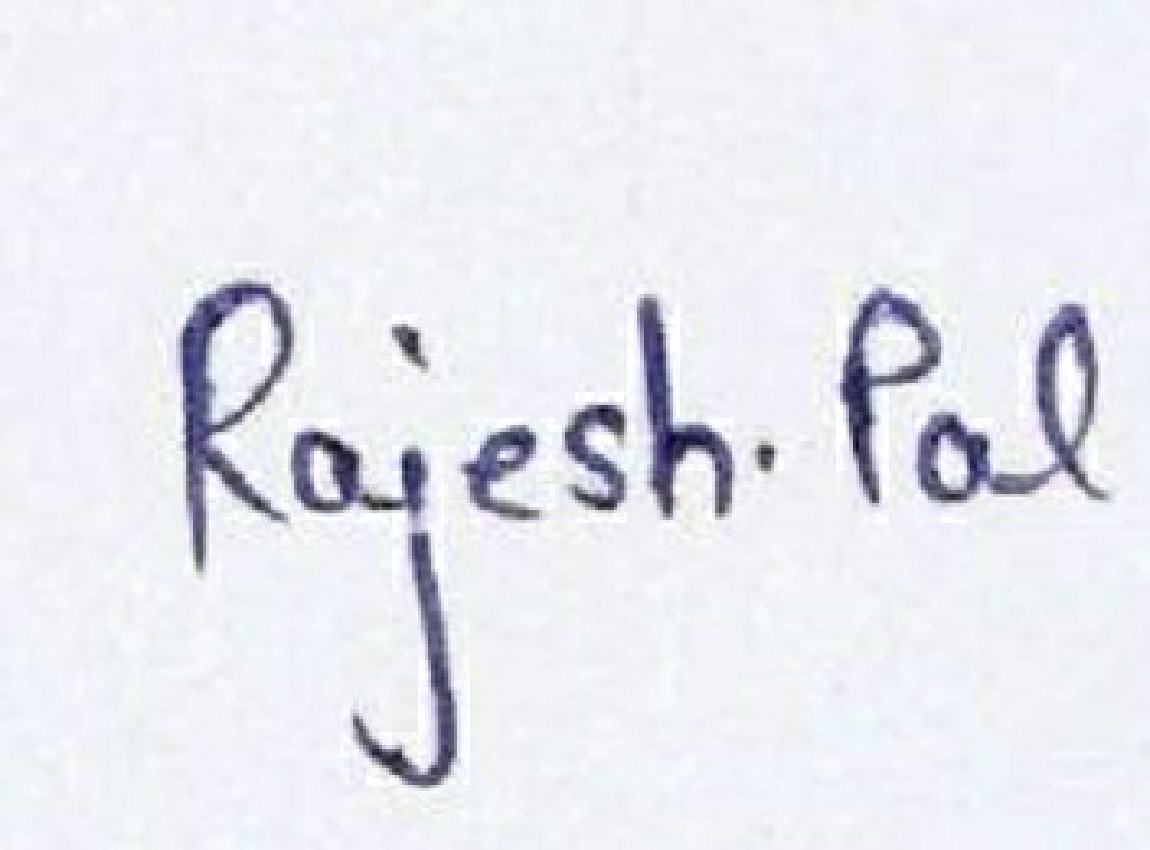 Rajesh. Pal